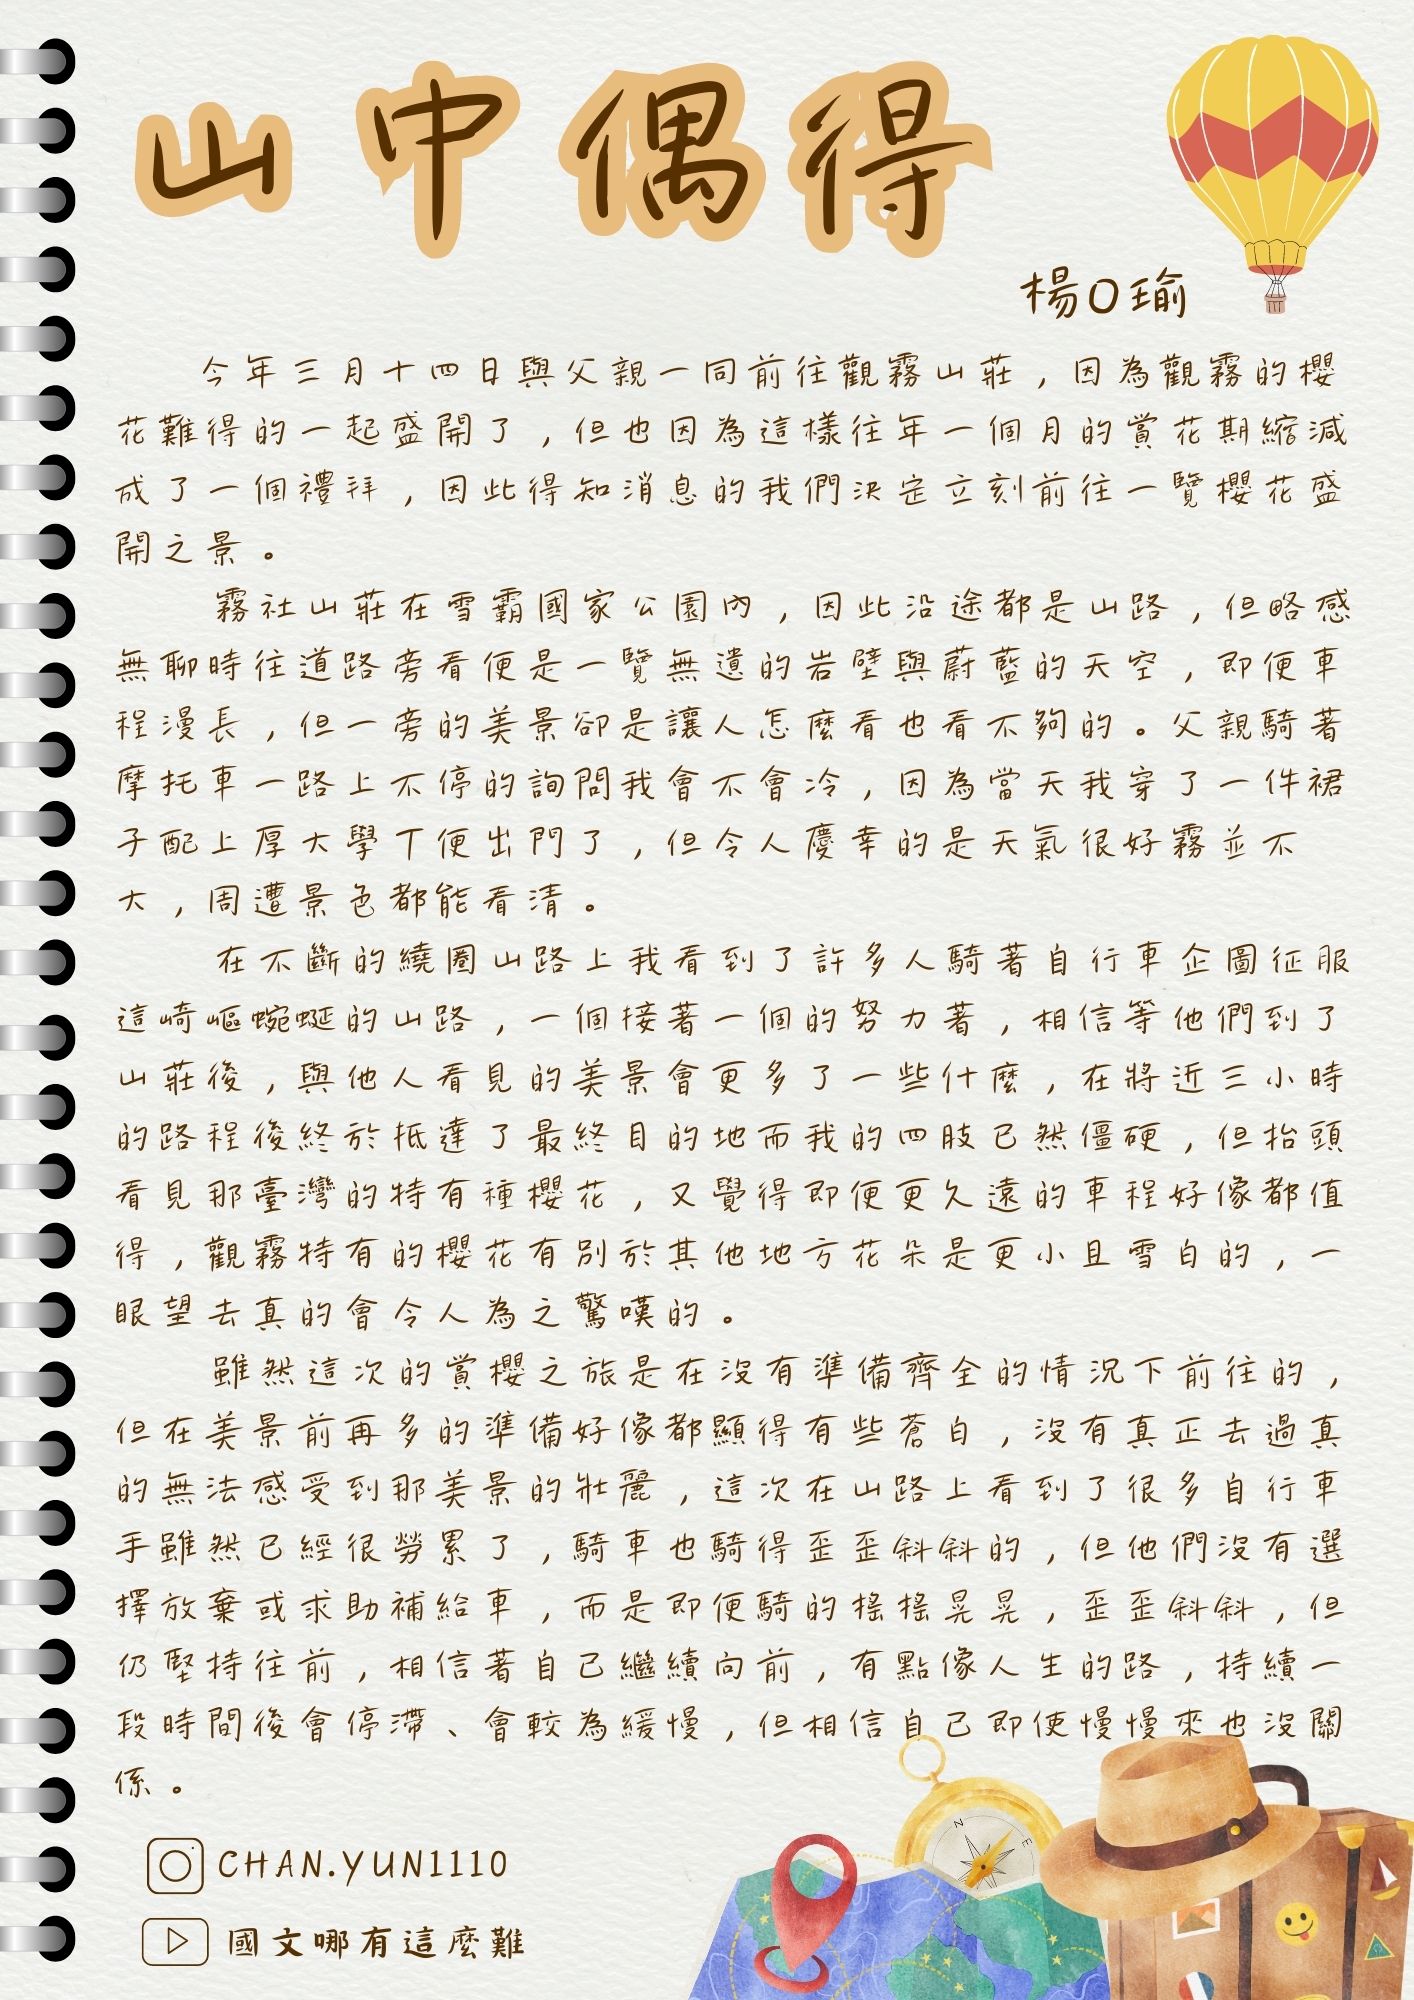 山中偶得
楊○瑜
今年三月十四日與父親一同前往觀霧山莊，因為觀霧的櫻
花難得的一起盛開了，但也因為這樣往年一個月的賞花期縮減
成了一個禮拜，因此得知消息的我們決定立刻前往一覽櫻花盛
開之景。
霧社山莊在雪霸國家公園內，因此沿途都是山路，但略感
無聊時往道路旁看便是一覽無遺的岩壁與蔚藍的天空，即便車
程漫長，但一旁的美景卻是讓人怎麼看也看不夠的。父親騎著
摩托車一路上不停的詢問我會不會冷，因為當天我穿了一件裙
子配上厚大學T便出門了，但令人慶幸的是天氣很好霧並不
大，周遭景色都能看清。
在不斷的繞圈山路上我看到了許多人騎著自行車企圖征服
這崎嶇蜿蜒的山路，一個接著一個的努力著，相信等他們到了
山莊後，與他人看見的美景會更多了一些什麼，在將近三小時
的路程後終於抵達了最終目的地而我的四肢已然僵硬，但抬頭
看見那臺灣的特有種櫻花，又覺得即便更久遠的車程好像都值
得，觀霧特有的櫻花有別於其他地方花朵是更小且雪白的，一
眼望去真的會令人為之驚嘆的。
雖然這次的賞櫻之旅是在沒有準備齊全的情況下前往的，
但在美景前再多的準備好像都顯得有些蒼白，沒有真正去過真
的無法感受到那美景的壯麗，這次在山路上看到了很多自行車
手雖然已經很勞累了，騎車也騎得歪歪斜斜的，但他們沒有選
擇放棄或求助補給車，而是即便騎的搖搖晃晃，歪歪斜斜，但
仍堅持往前，相信著自己繼續向前，有點像人生的路，持續一
段時間後會停滯、會較為緩慢，但相信自己即使慢慢來也沒關
係。
N
E
CHAN.YUN1110
國文哪有這麼難